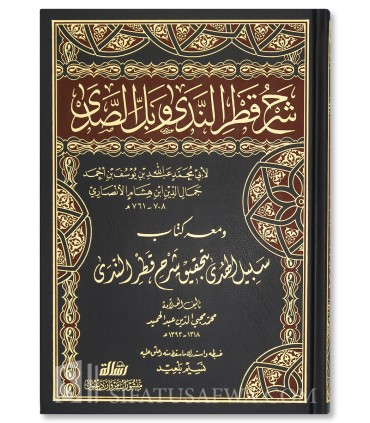 شرح قطر الندى وبل الصدى
لأبي محمد عبد الله بن يوسف بن أحمد
جمال الدين ابن هشام الأنصاري
٧٠٨ - ٧٦١ هـ
ومعه كتاب
سبيل الهدى بتحقيق شرح قطر الندى
تأليف العلامة
محمد محيي الدين عبد الحميد
١٣١٨ - ١٣٩٣ هـ
ضبطه واستدرك ما سقط منه وعلق عليه
نسيم بلعيد
رسالة
SIFATUSAFWA.COM